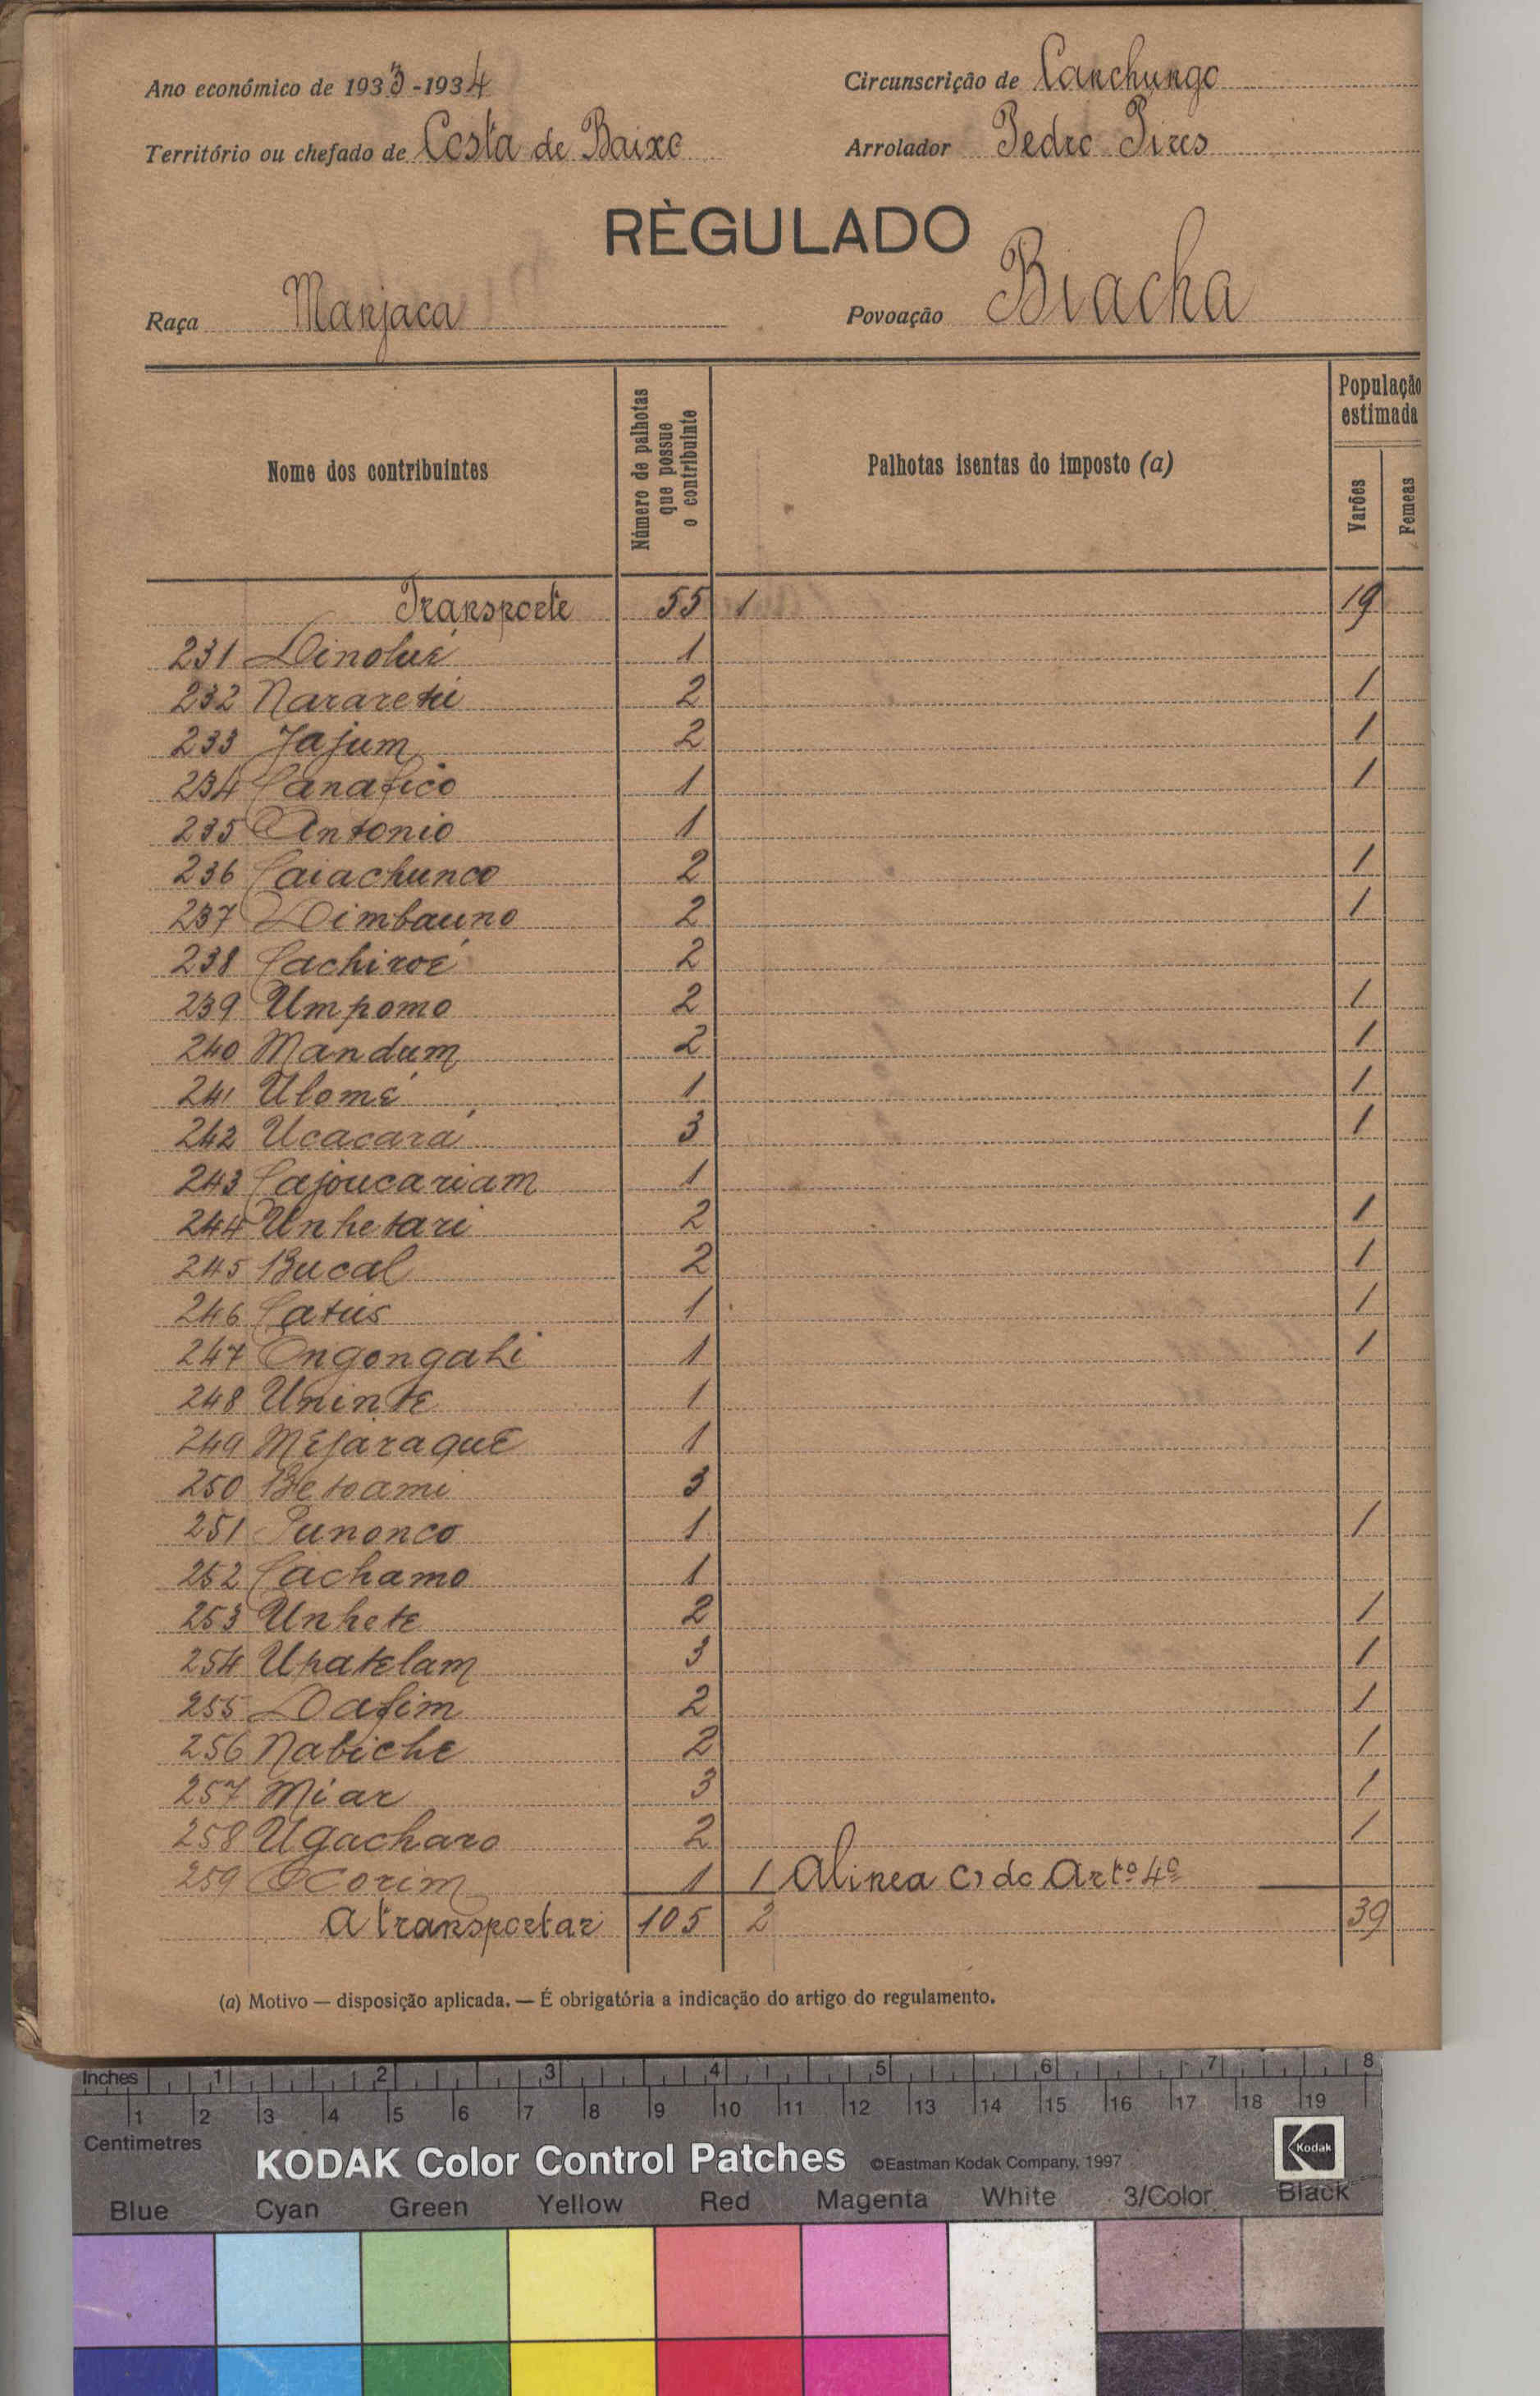 Ano económico de 1933-1934 Circunscrição de Canchungo
Território ou chefado de Costa de Baixo Arrolador Pedro Pires
RÈGULADO
Raça Manjaca Povoação Biacha
Nome dos contribuintes Número de palhotas que possue o contribuinte Palhotas isentas do imposto (a) População estimada Varões Femeas
Transporte 55 1 19
231 Dinolué 1
232 Nararetú 2 1
233 Jajum 2 1
234 Canafico 1 1
235 Antonio 1
236 Caiachunco 2 1
237 Dimbauno 2 1
238 Cachiroé 2
239 Umpomo 2 1
240 Mandum 2 1
241 Ulomé 1 1
242 Ucacará 3 1
243 Cajoucariam 1
244 Unhetari 2 1
245 Bucal 2 1
246 Catús 1 1
247 Ongongahi 1 1
248 Uninte 1
249 Mejaraque 1
250 Betoami 3
251 Punonco 1 1
252 Cachamo 1
253 Unhete 2 1
254 Upatelam 3 1
255 Dafim 2 1
256 Nabiche 2 1
257 Miar 3 1
258 Ugacharo 2 1
259 Ocorim 1 1 Alinea c) do Artº 4º
A transportar 105 2 39
(a) Motivo — disposição aplicada. — É obrigatória a indicação do artigo do regulamento.
Inches 1 2 3 4 5 6 7 8
1 2 3 4 5 6 7 8 9 10 11 12 13 14 15 16 17 18 19
Centimetres
KODAK Color Control Patches ©Eastman Kodak Company, 1997 Kodak
Blue Cyan Green Yellow Red Magenta White 3/Color Black